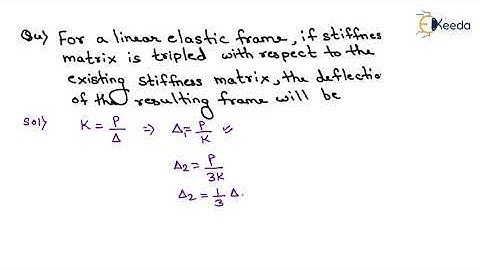 Ekeeda
Qu) For a linear elastic frame, if stiffnes
matrix is tripled with respect to the
existing stiffness matrix, the deflectio
of the resulting frame will be
Sol) K = P/Δ ⇒ Δ₁ = P/K ✓
Δ₂ = P/3K
Δ₂ = 1/3 Δ.